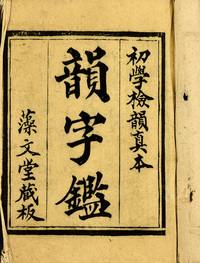 初學檢韻真本
韻字鑑
藻文堂藏板